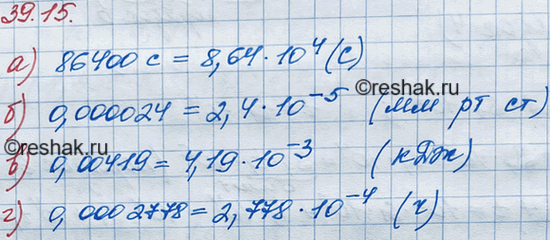 39.15.
а) 86400 с = 8,64 · 10⁴ (с)
©reshak.ru
б) 0,000024 = 2,4 · 10⁻⁵ (мм рт ст)
©reshak.ru
в) 0,00419 = 4,19 · 10⁻³ (кДж)
г) 0,0002778 = 2,778 · 10⁻⁴ (ч)